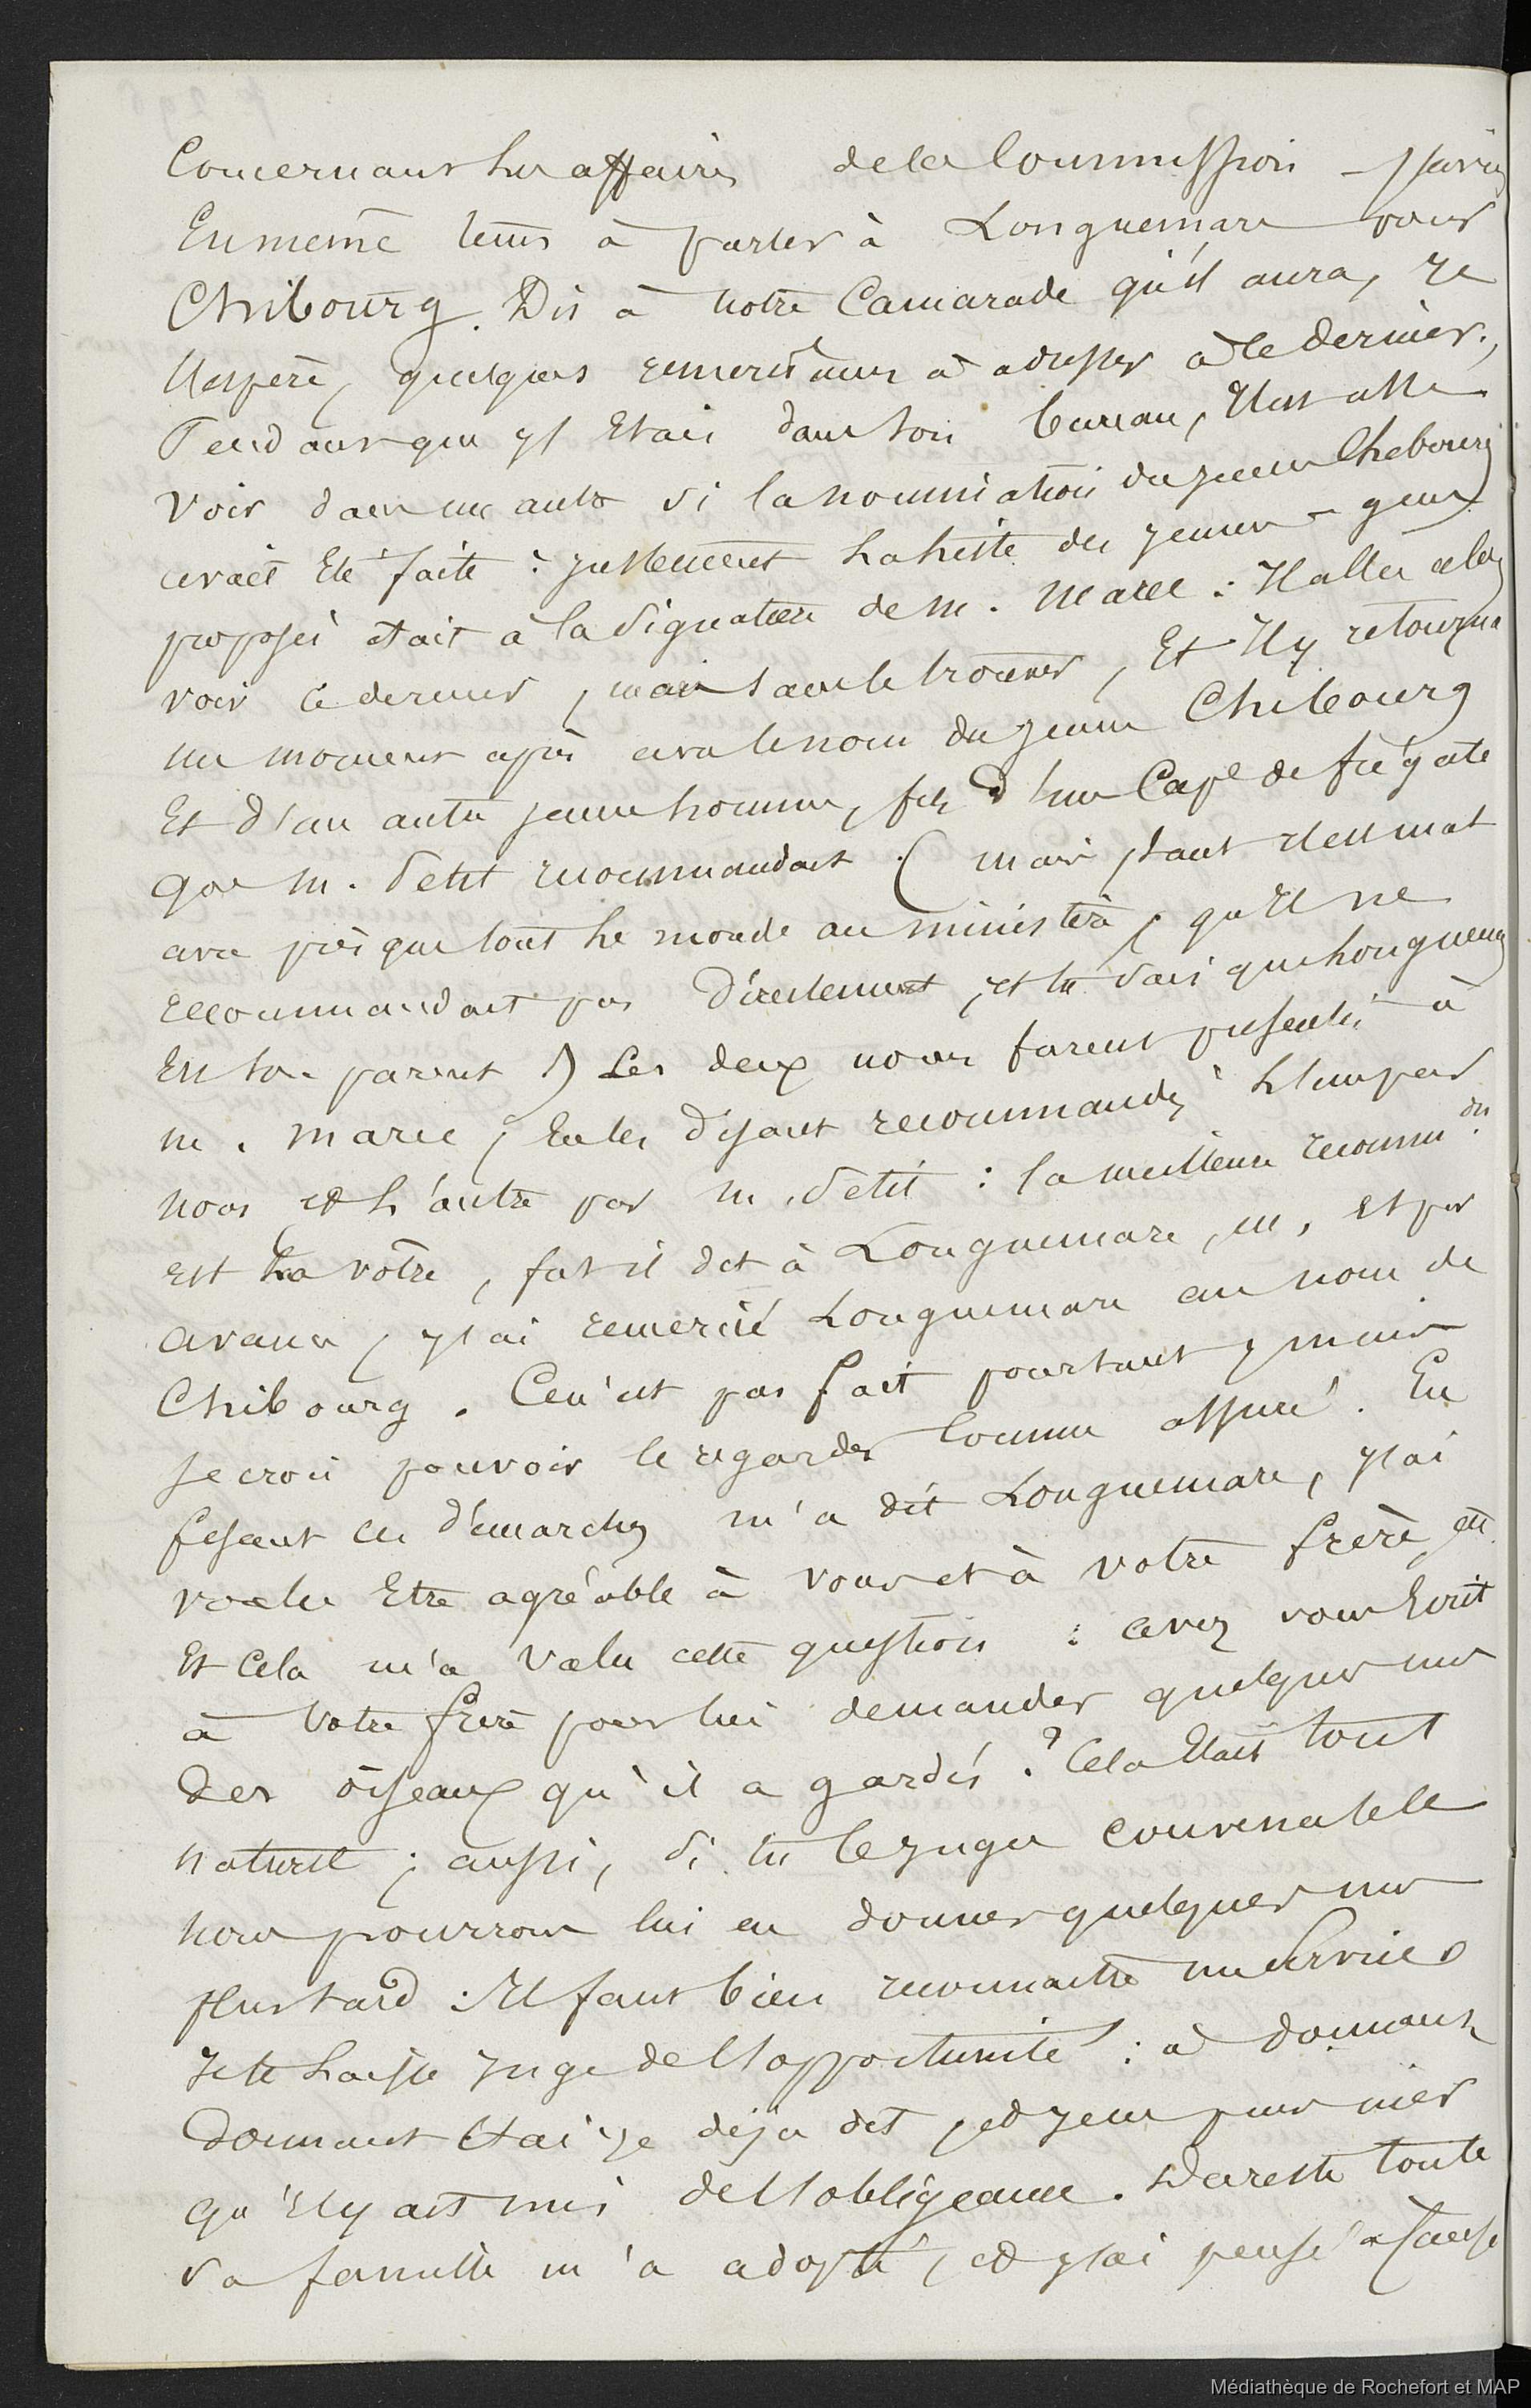 Concernant les affaires de la Commission – j'avais
En même tems à parler à Longuemare pour
Chibourg. Dis à notre Camarade qu'il aura, je
l'espère, quelques remerciemens à adresser à ce dernier.,
Pendant que j'étais dans son bureau, Il est allé
voir dans un autre si la nomination du jeune Chebourg
avait été faite : justement la liste des jeunes – gens
proposés était à la signature de M. Marec : Il alla alors
voir ce dernier, mais sans le trouver, Et Il y retourna
un moment après avec le nom du jeune Chibourg
Et d'un autre jeune homme, fils d'un Cape de frégate
que M. Petit recommandait . ( mais Petit est mal
avec presque tout le monde au ministère, qu'Il ne
recommandait pas directement, et tu sais que Longuemare
Est son parent .) Les deux noms furent présentés à
M. Marec, En les disant recommandés l'un par
nous et l'autre par M. Petit : la meilleure recommdon
est la vôtre, fut il dit à Longuemare, et, et par
avance, j'ai remercié Longuemare au nom de
Chibourg. Ce n'est pas fait pourtant, mais
je crois pouvoir le regarder comme assuré. En
fesant ces démarches m'a dit Longuemare, j'ai
voulu Etre agréable à vous et à votre frère, etc.
Et Cela m'a valu cette question : avez vous Ecrit
à votre frère pour lui demander quelques uns
des oiseaux qu'il a gardés ? Cela était tout
naturel ; aussi, si tu le juges convenable
nous pourrons lui en donner quelques uns
plus tard : Il faut bien reconnaitre un service
Je te laisse juge de l'opportunité : à donnant
donnant t'ai-je déjà dit, et je ne puis nier
qu'Il y ait mis de l'obligeance. Du reste toute
sa famille m'a adopté, et j'ai pensé